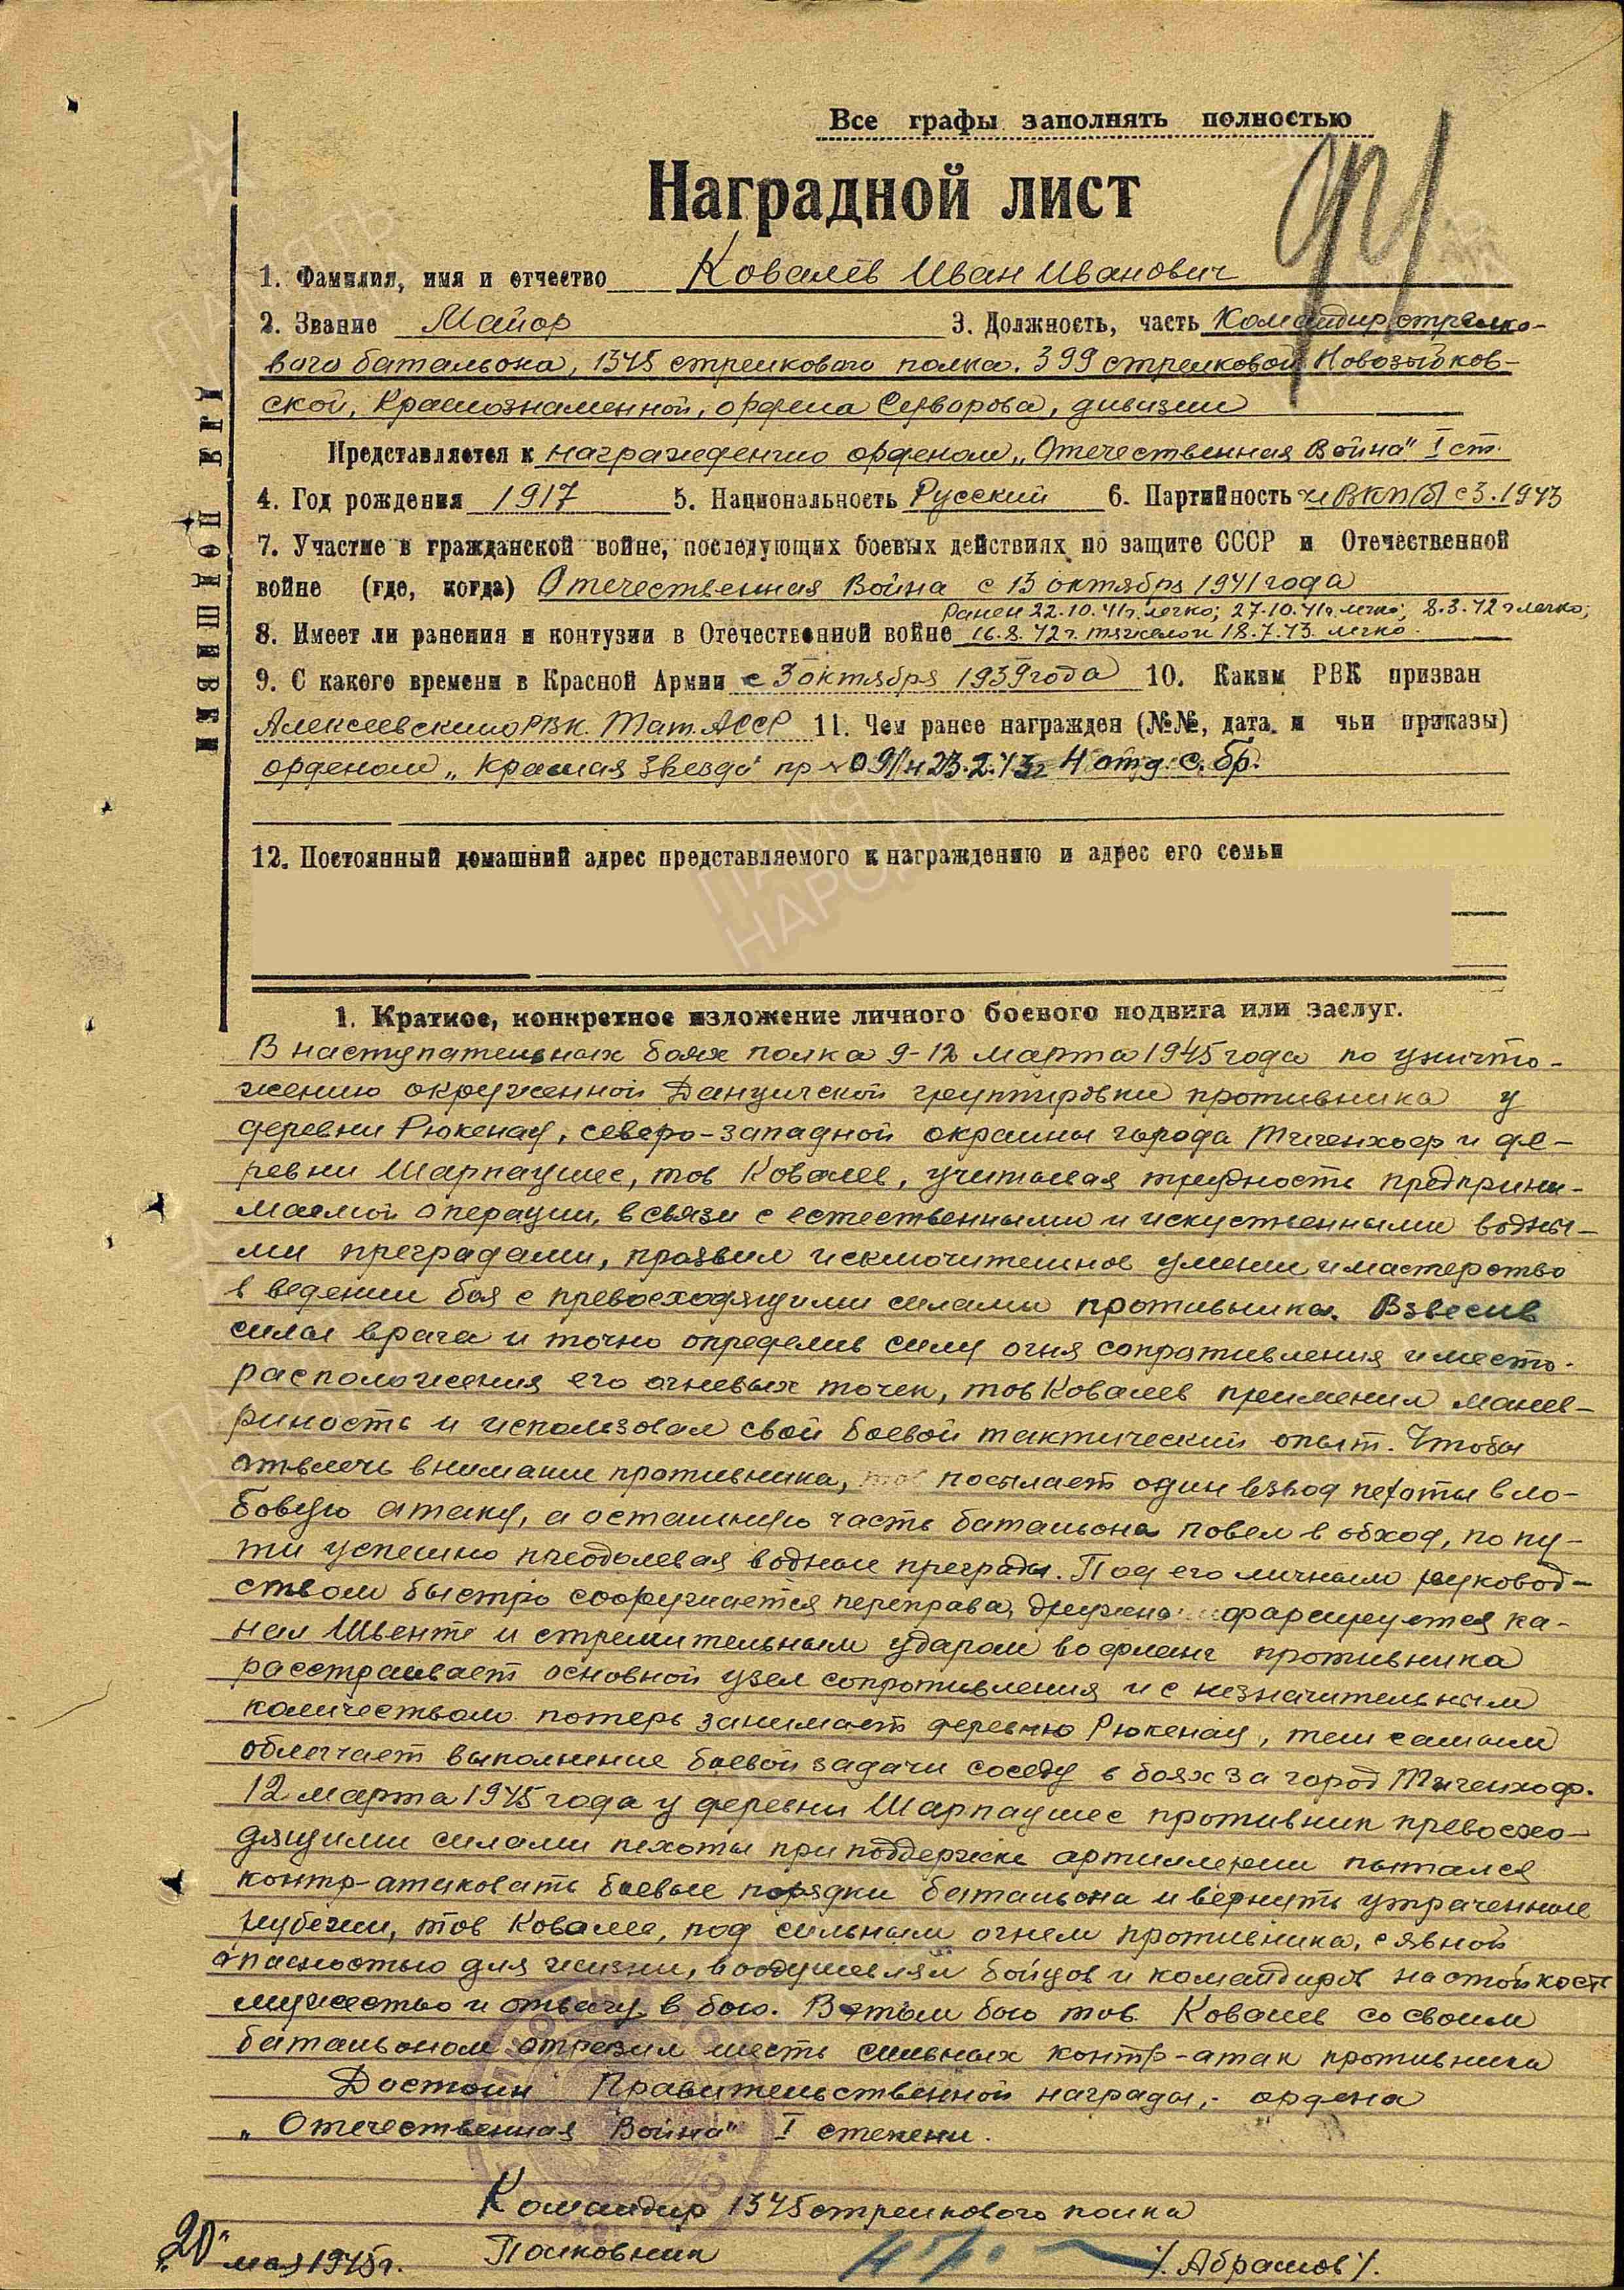 Все графы заполнять полностью
Наградной лист
1. Фамилия, имя и отчество Ковалев Иван Иванович
2. Звание Майор 3. Должность, часть Командир стрелко-
вого батальона, 1345 стрелкового полка. 399 стрелковой Новозыбков-
ской, Краснознаменной, ордена Суворова, дивизии
Представляется к награждению орденом „Отечественная Война" I ст.
4. Год рождения 1917 5. Национальность Русский 6. Партийность чл ВКП(б) с 3.1943
7. Участие в гражданской войне, последующих боевых действиях по защите СССР и Отечественной
войне (где, когда) Отечественная Война с 13 октября 1941 года
Ранен 22.10.41г. легко; 27.10.41г. легко; 8.3.42 г легко;
8. Имеет ли ранения и контузии в Отечественной войне 16.8.42 г. тяжело и 18.7.43. легко.
9. С какого времени в Красной Армии с 3 октября 1939 года 10. Каким РВК призван
Алексеевским РВК. Тат. АССР 11. Чем ранее награжден (№№, дата и чьи приказы)
орденом „Красная Звезда" пр № 09/н 23.2.43г 4 отд. с. бр.
12. Постоянный домашний адрес представляемого к награждению и адрес его семьи
1. Краткое, конкретное изложение личного боевого подвига или заслуг.
В наступательных боях полка 9-12 марта 1945 года по уничто-
жению окруженной Данцигской группировки противника у
деревни Рюкенау, северо-западной окраины города Тигенхоф и де-
ревни Шарпаушес, тов Ковалев, учитывая трудность предприни-
маемой операции, в связи с естественными и искуственными водны-
ми преградами, проявил исключительное умении и мастерство
в ведении боя с превосходящими силами противника. Взвесив
силы врага и точно определив силу огня сопротивления и место-
расположения его огневых точек, тов Ковалев применил манев-
риность и использовал свой боевой тактический опыт. Чтобы
отвлечь внимание противника, посылает один взвод пехоты в ло-
бовую атаку, а остальную часть батальона повел в обход, по пу-
ти успешно преодолевая водные преграды. Под его личным руковод-
ством быстро сооружается переправа, дружно форсируется ка-
нал Швенте и стремительным ударом во фланг противника
расстраивает основной узел сопротивления и с незначительным
количеством потерь занимает деревню Рюкенау, тем самым
облегчает выполнение боевой задачи соседу в боях за город Тигенхоф.
12 марта 1945 года у деревни Шарпаушес противник превосхо-
дящими силами пехоты при поддержке артиллерии пытался
контр-атаковать боевые порядки батальона и вернуть утраченные
рубежи, тов Ковалев, под сильным огнем противника, с явной
опасностью для жизни, воодушевлял бойцов и командиров на стойкость
мужество и отвагу в бою. В этом бою тов. Ковалев со своим
батальоном отразил шесть сильных контр-атак противника
Достоин Правительственной награды, - ордена
„Отечественная Война" I степени.
Командир 1345 стрелкового полка
Полковник /Абрамов/.
„20" мая 1945г.
ПАМЯТЬ
НАРОДА